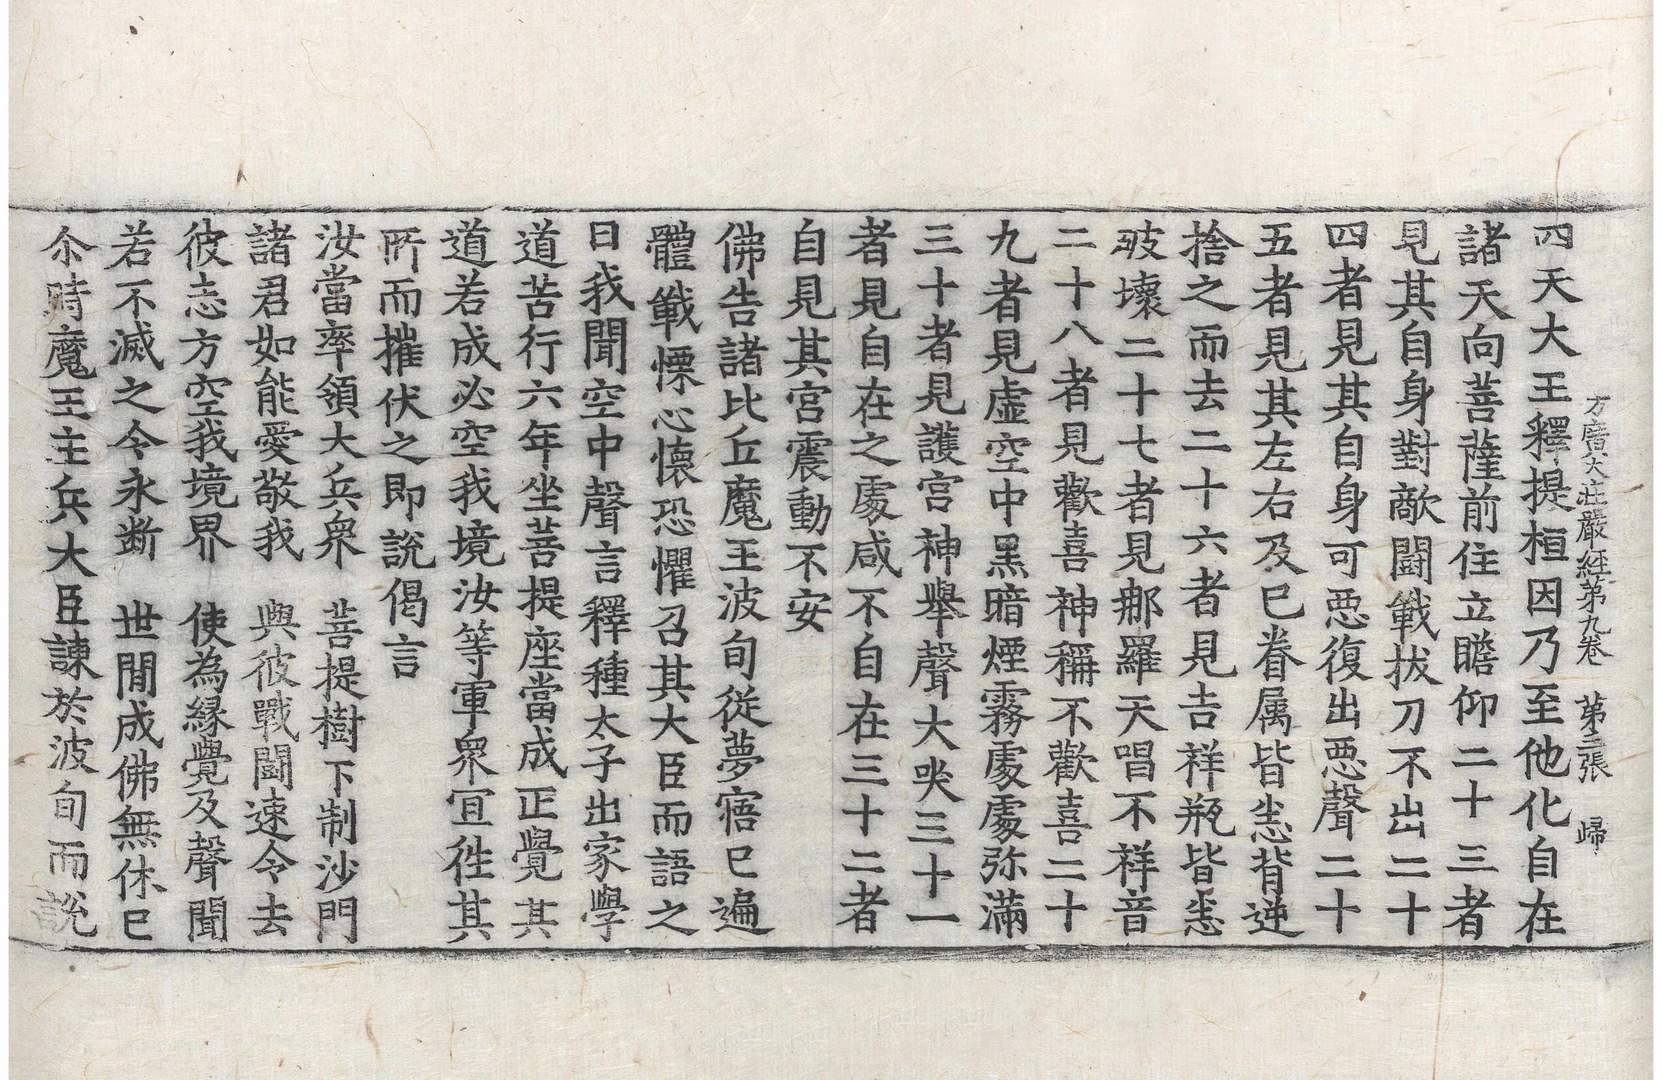 方廣大莊嚴經第九卷　第三張　歸
四天大王釋提桓因乃至他化自在
諸天向菩薩前住立瞻仰二十三者
見其自身對敵鬪戰拔刀不出二十
四者見其自身可惡復出惡聲二十
五者見其左右及已眷属皆悉背逆
捨之而去二十六者見吉祥瓶皆悉
破壞二十七者見那羅天唱不祥音
二十八者見歡喜神稱不歡喜二十
九者見虛空中黑暗煙霧處處弥滿
三十者見護宮神舉聲大哭三十一
者見自在之處咸不自在三十二者
自見其宮震動不安
佛告諸比丘魔王波旬從夢寤已遍
體戰慄心懷恐懼召其大臣而語之
曰我聞空中聲言釋種太子出家學
道苦行六年坐菩提座當成正覺其
道若成必空我境汝等軍衆宜往其
所而摧伏之即說偈言
汝當率領大兵衆　菩提樹下制沙門
諸君如能愛敬我　與彼戰鬪速令去
彼志方空我境界　使為緣覺及聲聞
若不滅之令永断　世間成佛無休已
尒時魔王主兵大臣諫於波旬而說